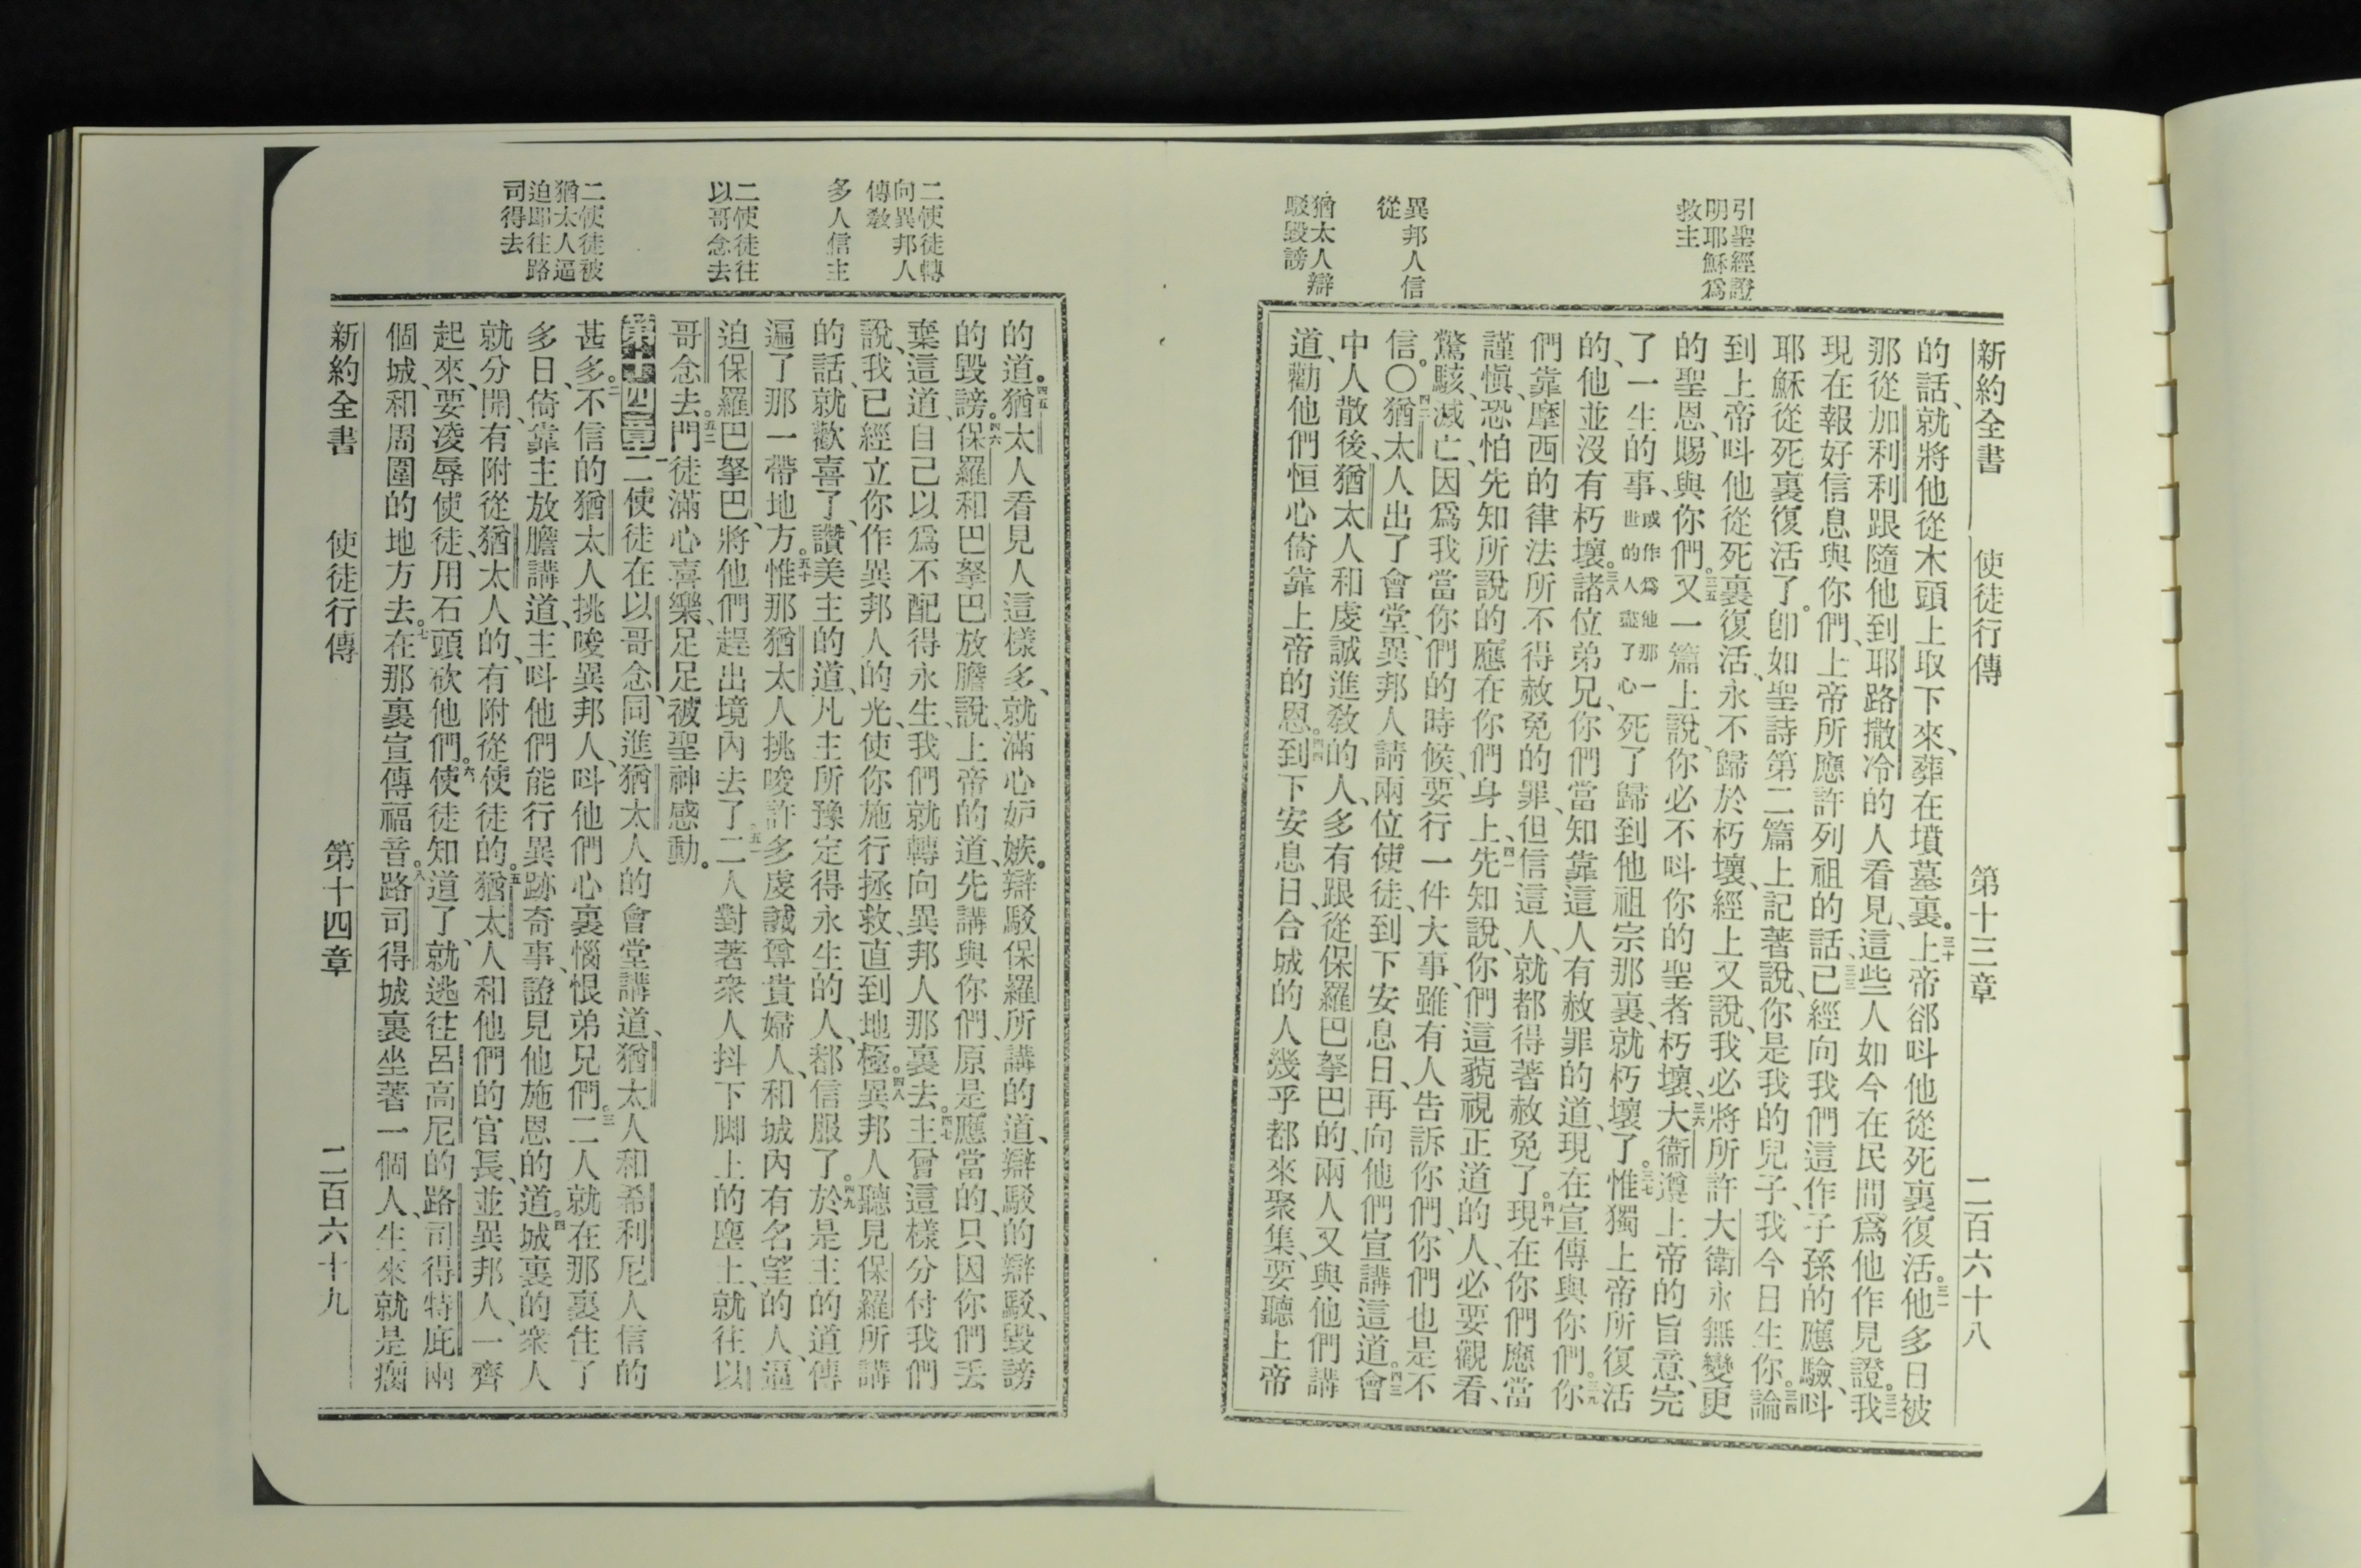 引聖經證
明耶穌爲
救主
異邦人信
從
猶太人辯
駁毀謗
新約全書 使徒行傳 第十三章 二百六十八
的話、就將他從木頭上取下來、葬在墳墓裏。三十上帝郤呌他從死裏復活。三一他多日被
那從加利利跟隨他到耶路撒冷的人看見、這些人如今在民間爲他作見證。三二我
現在報好信息與你們、上帝所應許列祖的話、三三已經向我們這作子孫的應驗、呌
耶穌從死裏復活了。卽如聖詩第二篇上記著說、你是我的兒子、我今日生你。三四論
到上帝呌他從死裏復活、永不歸於朽壞、經上又說、我必將所許大衛永無變更
的聖恩、賜與你們。三五又一篇上說、你必不呌你的聖者朽壞、三六大衞遵上帝的旨意、完
了一生的事、或作爲他那一世的人盡了心死了歸到他祖宗那裏、就朽壞了。三七惟獨上帝所復活
的、他並沒有朽壞。三八諸位弟兄、你們當知靠這人、有赦罪的道、現在宣傳與你們。三九你
們靠摩西的律法所不得赦免的罪、但信這人、就都得著赦免了。四十現在你們應當
謹愼、恐怕先知所說的應在你們身上、四一先知說、你們這藐視正道的人、必要觀看、
驚駭、滅亡、因爲我當你們的時候、要行一件大事、雖有人告訴你們、你們也是不
信。〇四二猶太人出了會堂、異邦人請兩位使徒、到下安息日、再向他們宣講這道。四三會
中人散後、猶太人和虔誠進敎的人、多有跟從保羅巴拏巴的、兩人又與他們講
道、勸他們恒心倚靠上帝的恩。四四到下安息日、合城的人幾乎都來聚集、要聽上帝
二使徒轉
向異邦人
傳敎
多人信主
二使徒往
以哥念去
二使徒被
猶太人逼
迫耶往路
司得去
的道。四五猶太人看見人這樣多、就滿心妒嫉。辯駁保羅所講的道、辯駁的辯駁、毀謗
的毀謗。四六保羅和巴拏巴放膽說、上帝的道、先講與你們、原是應當的、只因你們丟
棄這道、自己以爲不配得永生、我們就轉向異邦人那裏去。四七主曾這樣分付我們
說、我已經立你作異邦人的光、使你施行拯救、直到地極。四八異邦人聽見保羅所講
的話、就歡喜了、讚美主的道、凡主所豫定得永生的人、都信服了。四九於是主的道傳
遍了那一帶地方。五十惟那猶太人挑唆許多虔誠尊貴婦人、和城內有名望的人、逼
迫保羅巴拏巴、將他們趕出境內去了。五一二人對著衆人抖下脚上的塵土、就往以
哥念去。五二門徒滿心喜樂、足足被聖神感動。
第十四章 一二使徒在以哥念、同進猶太人的會堂講道、猶太人和希利尼人信的
甚多。二不信的猶太人挑唆異邦人、呌他們心裏惱恨弟兄們。三二人就在那裏住了
多日、倚靠主放膽講道、主呌他們能行異跡奇事、證見他施恩的道。四城裏的衆人
就分開、有附從猶太人的、有附從使徒的。五猶太人和他們的官長、並異邦人、一齊
起來、要凌辱使徒、用石頭砍他們。六使徒知道了、就逃往呂高尼的路司得特庇兩
個城、和周圍的地方去。七在那裏宣傳福音。八路司得城裏坐著一個人、生來就是瘸
新約全書 使徒行傳 第十四章 二百六十九